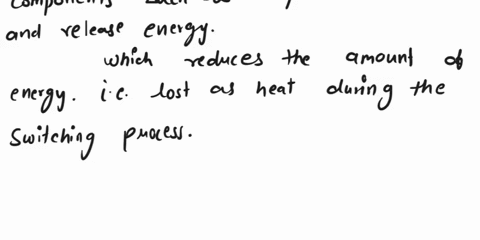 components
and release energy.
which reduces the amount of
energy. i.e. lost as heat during the
switching process.